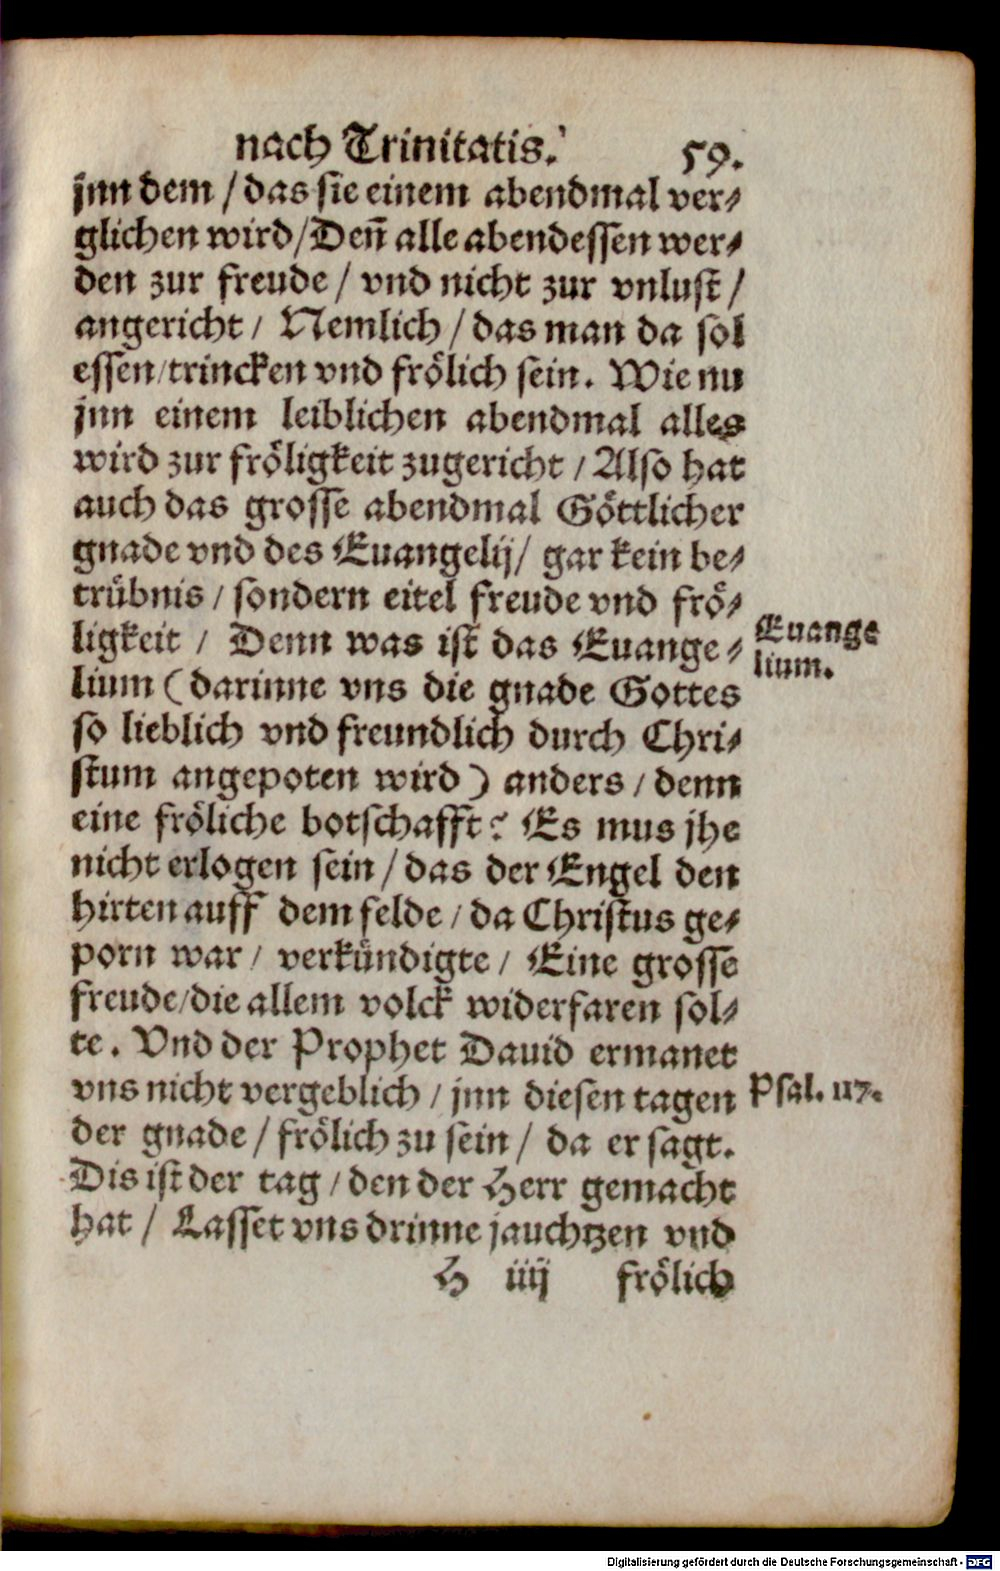 nach Trinitatis. 59.
jnn dem / das sie einem abendmal ver-
glichen wird / Deñ alle abendessen wer-
den zur freude / vnd nicht zur vnlust /
angericht / Nemlich / das man da sol
essen / trincken vnd frölich sein. Wie nu
jnn einem leiblichen abendmal alles
wird zur fröligkeit zugericht / Also hat
auch das grosse abendmal Göttlicher
gnade vnd des Euangelij / gar kein be-
trübnis / sondern eitel freude vnd frö-
ligkeit / Denn was ist das Euange-
lium (darinne vns die gnade Gottes
so lieblich vnd freundlich durch Chri-
stum angepoten wird) anders / denn
eine fröliche botschafft? Es mus jhe
nicht erlogen sein / das der Engel den
hirten auff dem felde / da Christus ge-
porn war / verkündigte / Eine grosse
freude / die allem volck widerfaren sol-
te. Vnd der Prophet Dauid ermanet
vns nicht vergeblich / jnn diesen tagen
der gnade / frölich zu sein / da er sagt.
Dis ist der tag / den der Herr gemacht
hat / Lasset vns drinne jauchtzen vnd
H iiij frölich
Euange
lium.
Psal. 117.
Digitalisierung gefördert durch die Deutsche Forschungsgemeinschaft - DFG